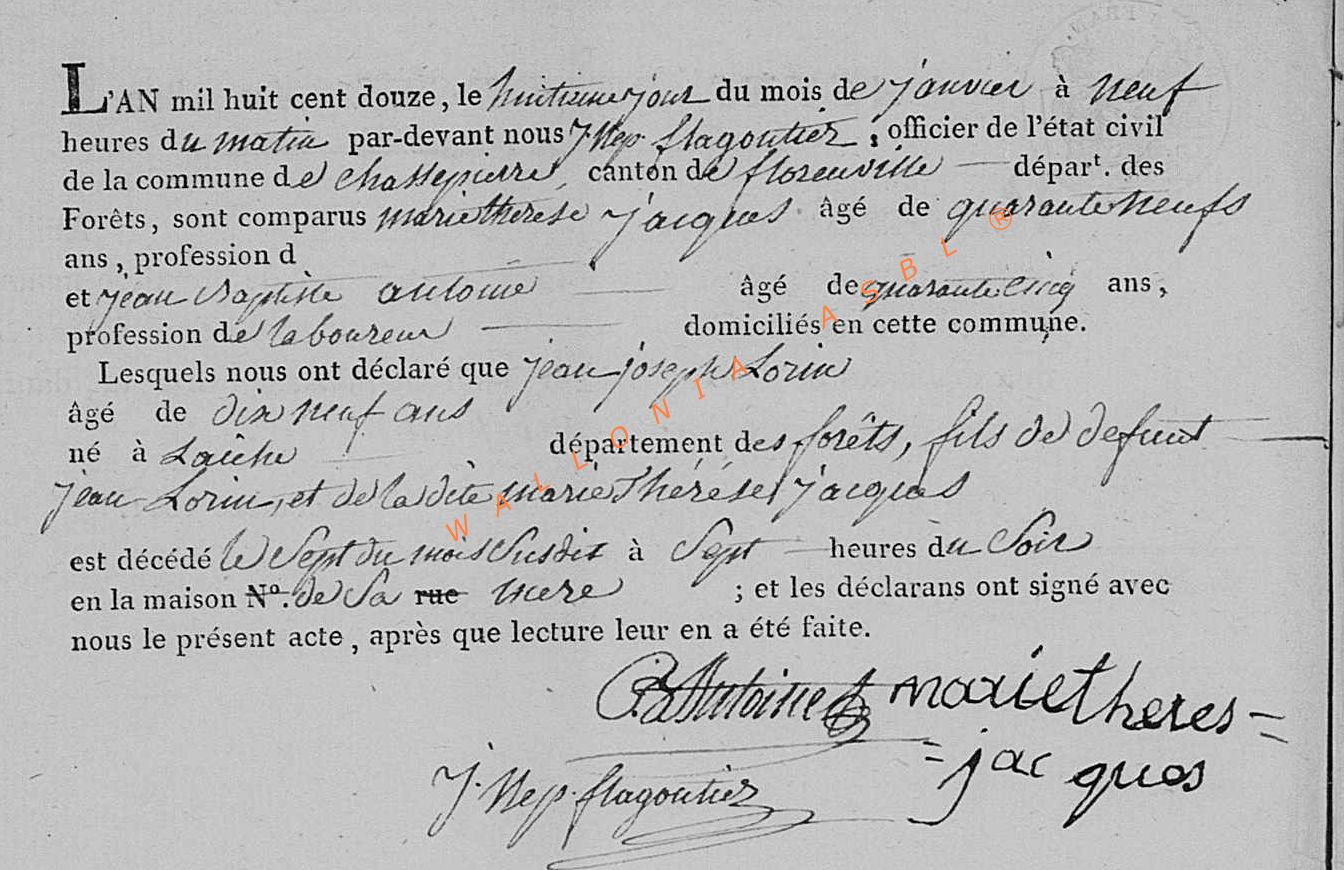 L'AN mil huit cent douze, le huitieme jour du mois de janvier à neuf
heures du matin par-devant nous J Nep. flagoutier, officier de l'état civil
de la commune de chassepierre, canton de florenville départ. des
Forêts, sont comparus marie therese jacques âgé de quarante neufs
ans, profession d
et jean Baptiste antoine âgé de quarante cinq ans,
profession de laboureur domiciliés en cette commune.
Lesquels nous ont déclaré que jean joseph Lorin
âgé de dix neuf ans
né à Laiche département des forêts, fils de defunt
jean Lorin, et de la dite marie Thérése jacques
est décédé le Sept du mois Susdit à Sept heures du Soir
en la maison N°. de Sa rue mere ; et les déclarans ont signé avec
nous le présent acte, après que lecture leur en a été faite.
Antoine marie theres=
=jac ques
J. Nep. flagoutier
WALLONIA ASBL ®